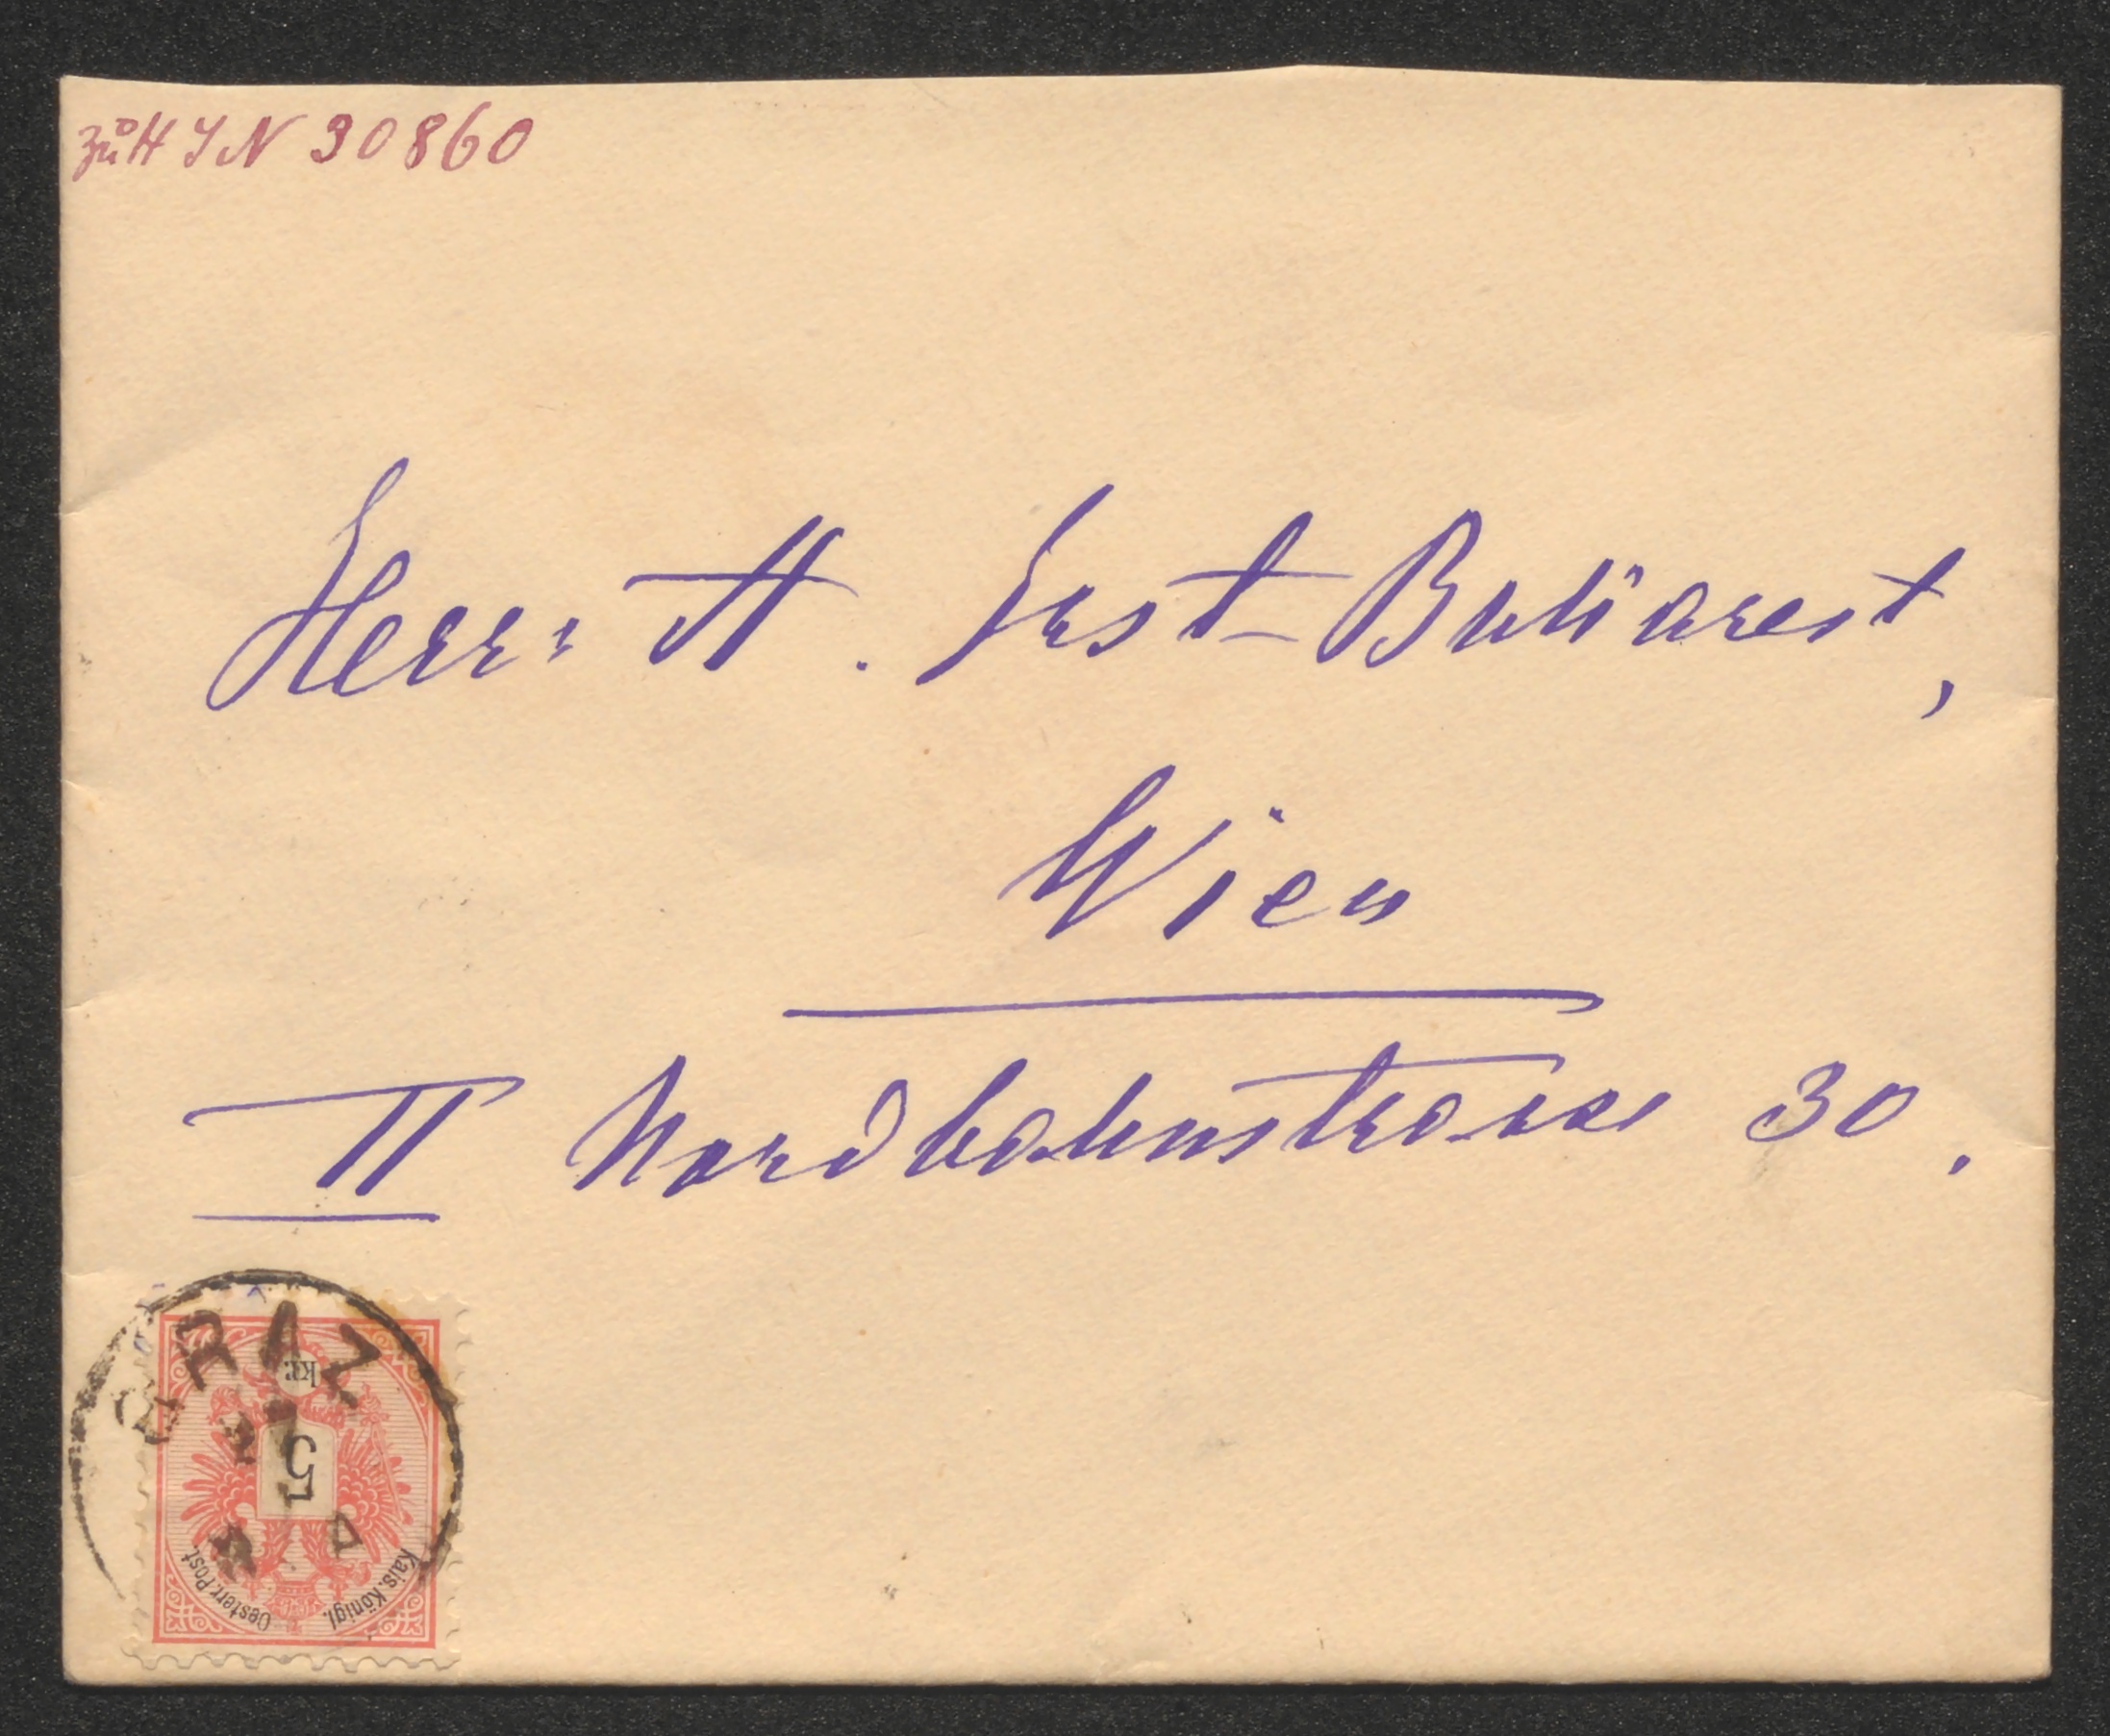 zu H I N 90860
Herrn A. Erst-Bukarest,
Wien
II Nordbahnstrasse 30.
GRAZ
kr.
5
Kais. Königl. Oesterr. Post.